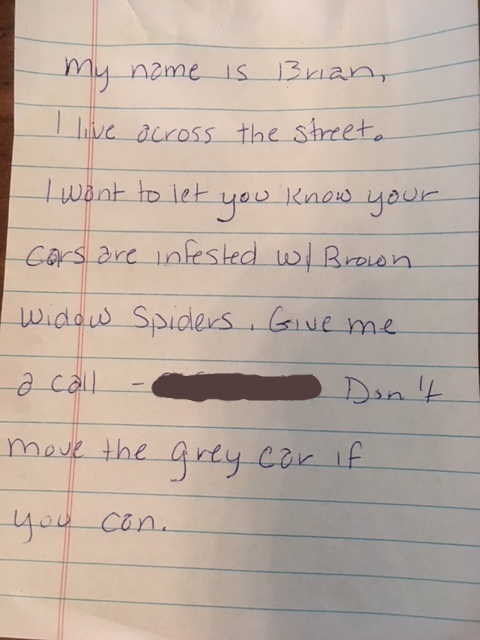 my name is Brian,
I live across the street.
I want to let you know your
cars are infested w/ Brown
Widow Spiders. Give me
a call - Don't
move the grey car if
you can.